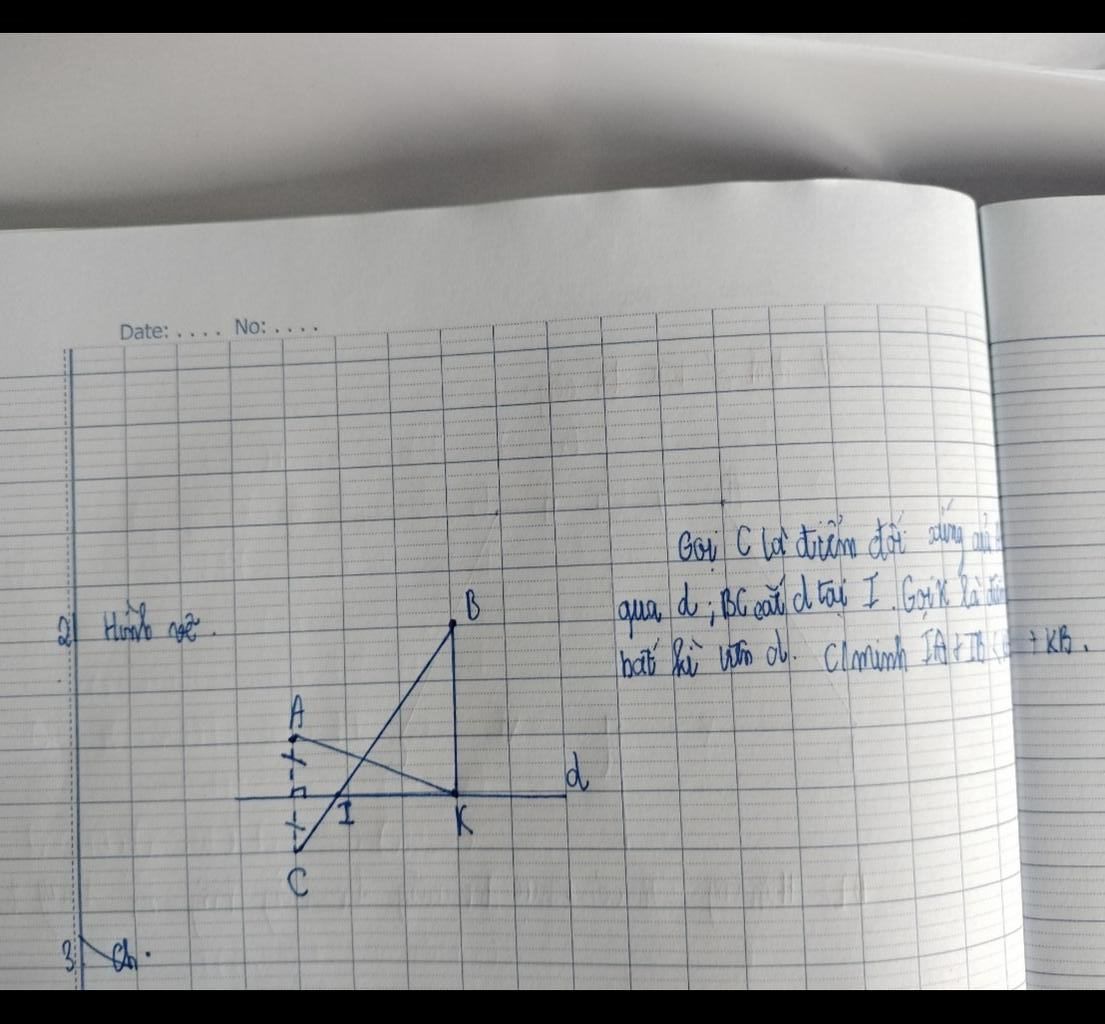 Date: .... No: ....
Gọi C là điểm đối xứng của
qua d; BC cắt d tại I. Gọi K là điểm
2 Hình vẽ.
bất kì trên d. C/minh IA + IB < + KB.
B
A
d
I
K
C
3. Ch.